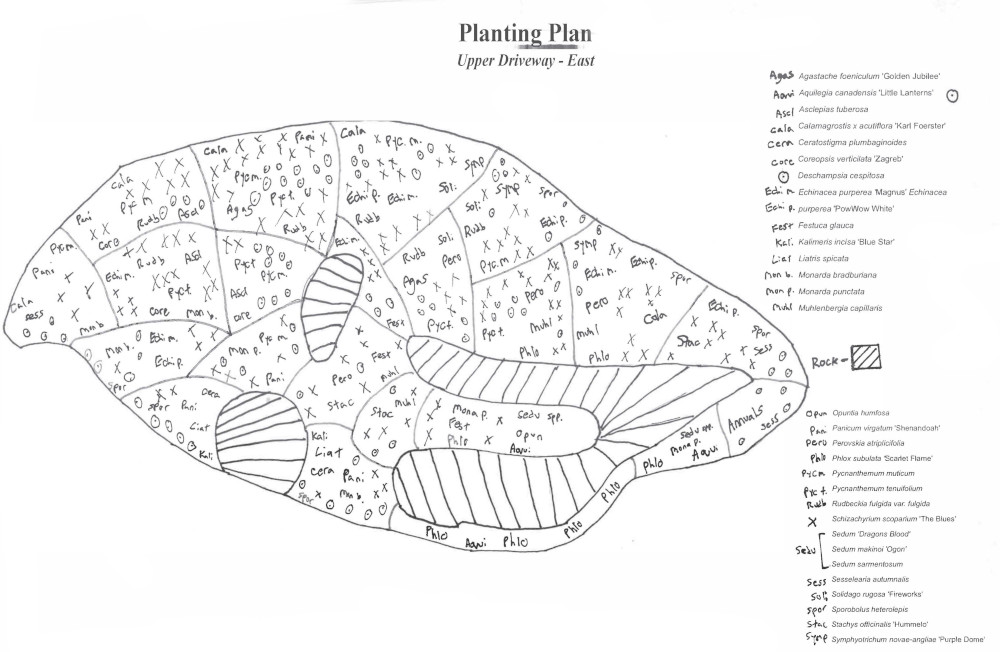 Planting Plan
Upper Driveway - East
Agas Agastache foeniculum 'Golden Jubilee'
Aqui Aquilegia canadensis 'Little Lanterns'
Ascl Asclepias tuberosa
Cala Calamagrostis x acutiflora 'Karl Foerster'
Cera Ceratostigma plumbaginoides
Core Coreopsis verticilata 'Zagreb'
Deschampsia cespitosa
Echi m. Echinacea purperea 'Magnus' Echinacea
Echi p. purperea 'PowWow White'
Fest Festuca glauca
Kali. Kalimeris incisa 'Blue Star'
Liat Liatris spicata
Mon b. Monarda bradburiana
Mon p. Monarda punctata
Muhl Muhlenbergia capillaris
Rock -
Opun Opuntia humfosa
Pani Panicum virgatum 'Shenandoah'
Pero Perovskia atriplicifolia
Phlo Phlox subulata 'Scarlet Flame'
Pyc m Pycnanthemum muticum
Pyc t. Pycnanthemum tenuifolium
Rudb Rudbeckia fulgida var. fulgida
X Schizachyrium scoparium 'The Blues'
Sedum 'Dragons Blood'
Sedu Sedum makinoi 'Ogon'
Sedum sarmentosum
Sess Sesselearia autumnalis
Sol. Solidago rugosa 'Fireworks'
Spor Sporobolus heterolepis
Stac Stachys officinalis 'Hummelo'
Symp Symphyotrichum novae-angliae 'Purple Dome'
Cala Pani Cala Pyc. m.
Cala Pyc m. Symp
Pyc m Pyct. Echi p. Echi m. Sol. Symp Spor
Pani Rudb Ascl Agas Rudb Rudb Sol. Echi p.
Pyc m. Core Rudb Echi m. Sol. Rudb Symp
Pani Echi m. Ascl Pyct Pyc m. Rudb Pero Pyc m. Echi m. Echi p.
Cala Pyct Ascl Agas Pero Pero Spor
Sess Core Mon b. Core Fest Pyct. Pyct Muhl Muhl Cala Echi p.
Mon b. Echi m. Pyc m Phlo Phlo Stac Spor
Mon b. Echi p. Mon p. Fest Sess
Spor Cera Pani Pero Muhl
Spor Pani Stac Stac Muhl Mona p. Sedu spp. Annuals Sess
Liat Kali. Fest Phlo Opun Sedu spp.
Kali Liat Aqui Mona p. Aqui
Cera Pani Phlo
Spor Mon b. Phlo
Phlo Aqui Phlo Phlo